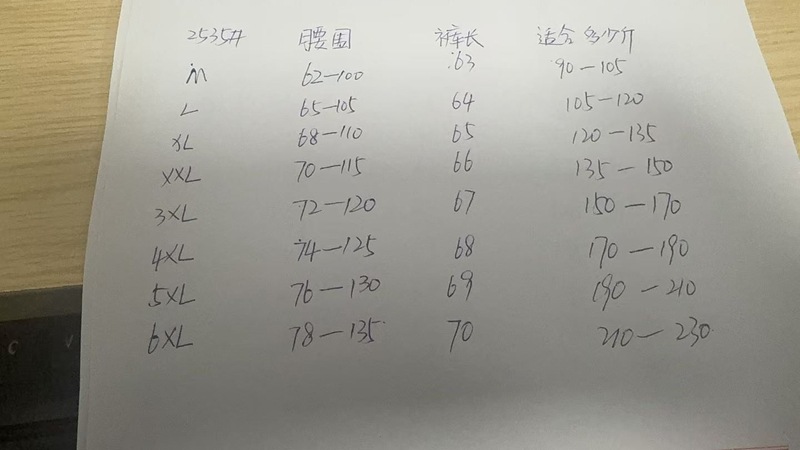 2535# 腰围 裤长 适合多少斤
M 62—100 63 90—105
L 65—105 64 105—120
XL 68—110 65 120—135
XXL 70—115 66 135—150
3XL 72—120 67 150—170
4XL 74—125 68 170—190
5XL 76—130 69 190—210
6XL 78—135 70 210—230
C V